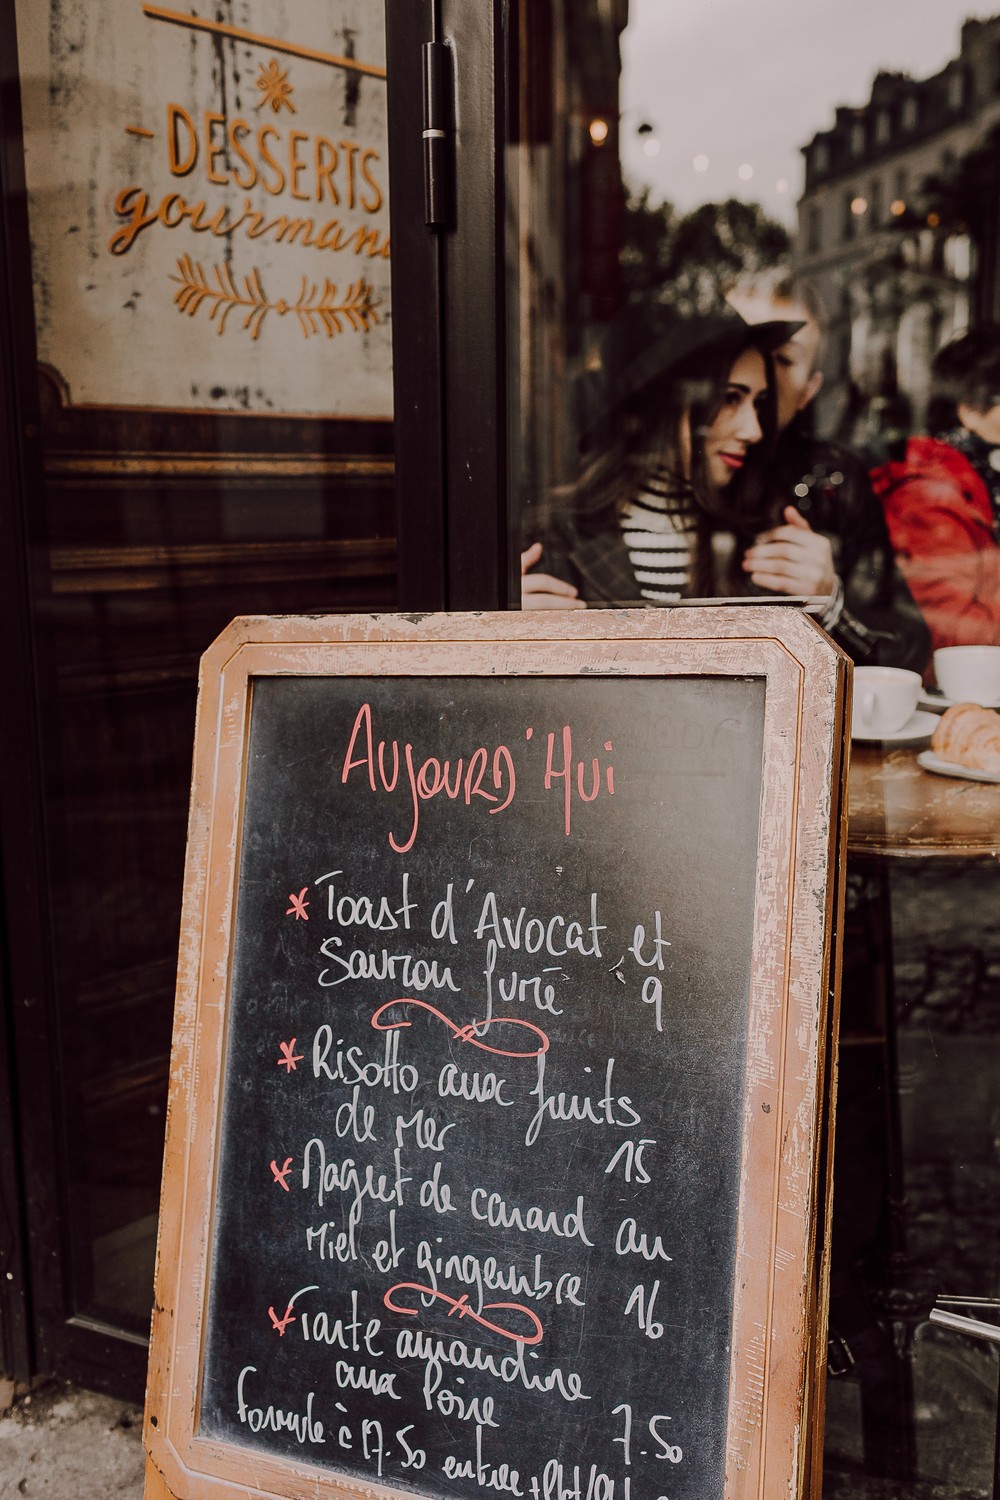 DESSERTS
gourman
Aujourd'Hui
* Toast d'Avocat et
Saumon fumé 9
* Risotto aux fruits
de Mer 15
* Magret de canard au
Miel et gingembre 16
* Tarte amandine
aux Poire 7.50
Formule à 17.50 entrée + Plat/